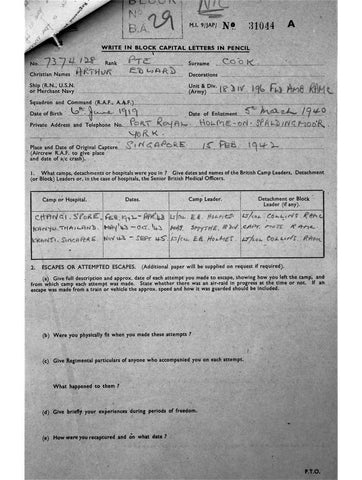 BLOCK
Nº
B.A. 29
M.I. 9/JAP/ Nº 31044 A
WRITE IN BLOCK CAPITAL LETTERS IN PENCIL
No. 7374128 Rank PTE Surname COOK
Christian Names ARTHUR EDWARD Decorations
Ship (R.N., U.S.N. or Merchant Navy Unit & Div. (Army) 18 DIV 196 FLD AMB RAMC
Squadron and Command (R.A.F., A.A.F.)
Date of Birth 6th June 1919 Date of Enlistment 5th March 1940
Private Address and Telephone No. PORT ROYAL. HOLME-ON-SPALDINGMOOR
YORK.
Place and Date of Original Capture SINGAPORE 15 FEB. 1942
(Aircrew R.A.F. to give place
and date of a/c crash).
1. What camps, detachments or hospitals were you in? Give dates and names of the British Camp Leaders, Detachment
(or Block) Leaders or, in the case of hospitals, the Senior British Medical Officers.
Camp or Hospital. Dates. Camp Leader. Detachment or Block Leader (if any).
CHANGI. S'PORE. FEB 1942 - APR '43 LT/COL E.B. HOLMES LT/COL COLLINS RAMC
KANYU. THAILAND. MAY '43 - OCT. '43 MAJ. SMYTHE. CAPT. RAMC
KRANJI. SINGAPORE NOV 43 - SEPT 45 LT/COL E.B. HOLMES. LT/COL COLLINS RAMC
2. ESCAPES OR ATTEMPTED ESCAPES. (Additional paper will be supplied on request if required).
(a) Give full description and approx. date of each attempt you made to escape, showing how you left the camp, and
from which camp each attempt was made. State whether there was an air-raid in progress at the time or not. If an
escape was made from a train or vehicle the approx. speed and how it was guarded should be included.
(b) Were you physically fit when you made these attempts?
(c) Give Regimental particulars of anyone who accompanied you on each attempt.
What happened to them?
(d) Give briefly your experiences during periods of freedom.
(e) How were you recaptured and on what date?
P.T.O.